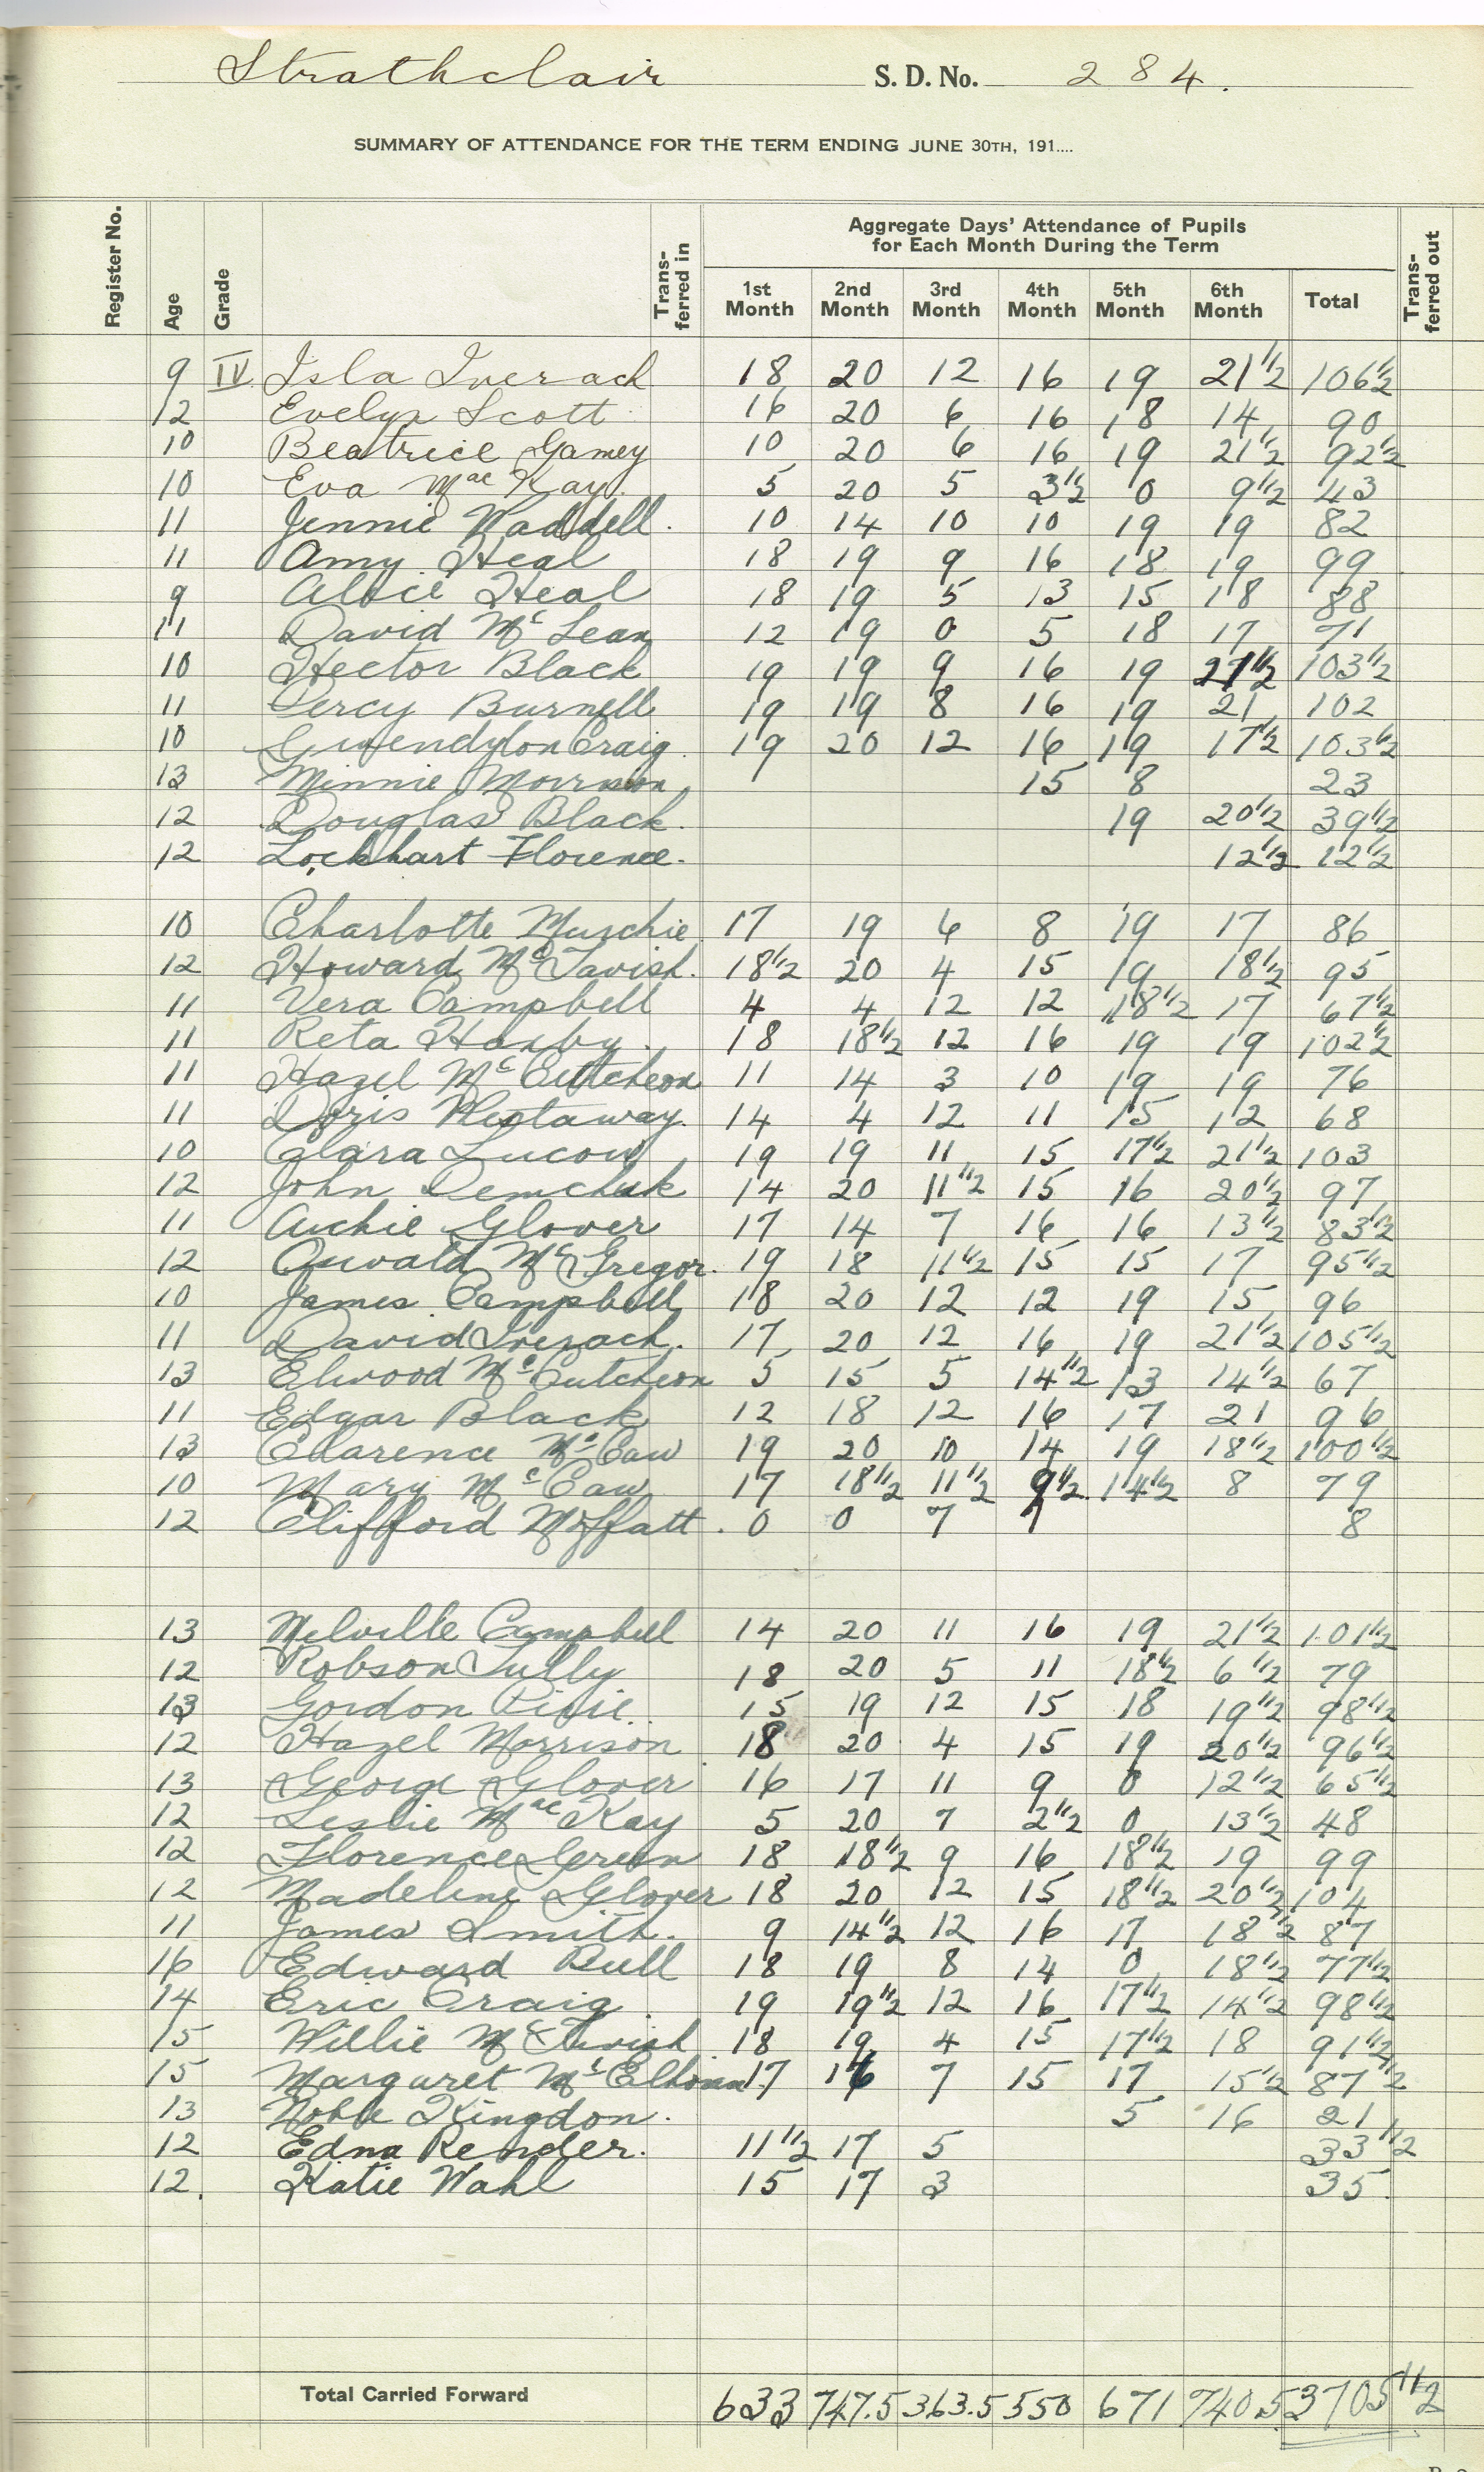 Strathclair S. D. No. 284.
SUMMARY OF ATTENDANCE FOR THE TERM ENDING JUNE 30TH, 191....
Aggregate Days' Attendance of Pupils
for Each Month During the Term
Register No. Age Grade Trans-ferred in 1st Month 2nd Month 3rd Month 4th Month 5th Month 6th Month Total Trans-ferred out
9 IV Isla Inerach 18 20 12 16 19 21 1/2 106 1/2
12 Evelyn Scott 16 20 6 16 18 14 90
10 Beatrice Gamey 10 20 6 16 19 21 1/2 92 1/2
10 Eva MacKay 5 20 5 3 1/2 0 9 1/2 43
11 Jennie Waddell. 10 14 10 10 19 19 82
11 Amy Heal 18 19 9 16 18 19 99
9 Albie Heal 18 19 5 13 15 18 88
11 David McLean 12 19 0 5 18 17 71
10 Hector Black 19 19 9 16 19 21 1/2 103 1/2
11 Percy Burnell 19 19 8 16 19 21 102
10 Gwendylon Craig 19 20 12 16 19 17 1/2 103 1/2
13 Minnie Morrison 15 8 23
12 Douglas Black. 19 20 1/2 39 1/2
12 Lockhart Florence. 12 1/2 12 1/2
10 Charlotte 17 19 6 8 19 17 86
12 Howard McTavish. 18 1/2 20 4 15 19 18 1/2 95
11 Vera Campbell 4 4 12 12 18 1/2 17 67 1/2
11 Reta Haxby. 18 18 1/2 12 16 19 19 102 1/2
11 Hazel McCutcheon 11 14 3 10 19 19 76
11 Doris Westaway. 14 4 12 11 15 12 68
10 Clara Lucow 19 19 11 15 17 1/2 21 1/2 103
12 John Demchuk 14 20 11 1/2 15 16 20 1/2 97
11 Archie Glover 17 14 7 16 16 13 1/2 83 1/2
12 Oswald McGregor. 19 18 11 1/2 15 15 17 95 1/2
10 James Campbell 18 20 12 12 19 15 96
11 David Inerach. 17 20 12 16 19 21 1/2 105 1/2
13 Elwood McCutcheon 5 15 5 14 1/2 13 14 1/2 67
11 Edgar Black 12 18 12 16 17 21 96
13 Clarence McCaw 19 20 10 14 19 18 1/2 100 1/2
10 Mary McCaw 17 18 1/2 11 1/2 9 1/2 14 1/2 8 79
12 Clifford Moffatt. 0 0 7 1 8
13 Melville Campbell 14 20 11 16 19 21 1/2 101 1/2
12 Robson Tully 18 20 5 11 18 1/2 6 1/2 79
13 Gordon Pirie. 15 19 12 15 18 19 1/2 98 1/2
12 Hazel Morrison 18 20 4 15 19 20 1/2 96 1/2
13 George Glover 16 17 11 9 0 12 1/2 65 1/2
12 Leslie MacKay 5 20 7 2 1/2 0 13 1/2 48
12 Florence Green 18 18 1/2 9 16 18 1/2 19 99
12 Madeline Glover 18 20 12 15 18 1/2 20 1/2 104
11 James Smith. 9 14 1/2 12 16 17 18 1/2 87
16 Edward Bull 18 19 8 14 0 18 1/2 77 1/2
14 Eric Craig 19 19 1/2 12 16 17 1/2 14 1/2 98 1/2
15 Willie McTavish 18 19 4 15 17 1/2 18 91 1/2
15 Margaret 17 16 7 15 17 15 1/2 87 1/2
13 Noble Kingdon. 5 16 21
12 Edna Render. 11 1/2 17 5 33 1/2
12. Katie Wahl 15 17 3 35
Total Carried Forward 633 747.5 363.5 550 671 740.5 3705 1/2